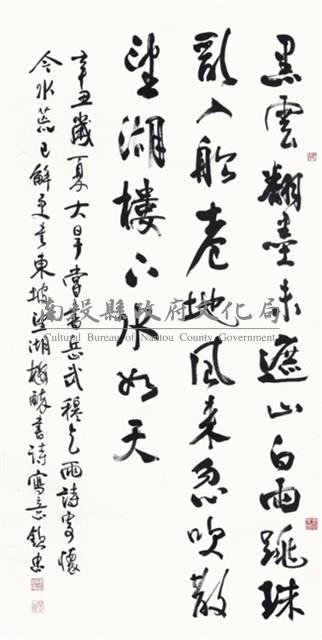 黑雲翻墨未遮山白雨跳珠
亂入船卷地風來忽吹散
望湖樓下水如天
辛丑歲夏大旱嘗書岳武穆乞雨詩寄懷
今水荒已解更書東坡望湖樓醉書詩寫意欽忠
南投縣政府文化局
Cultural Bureau of Nantou County Government